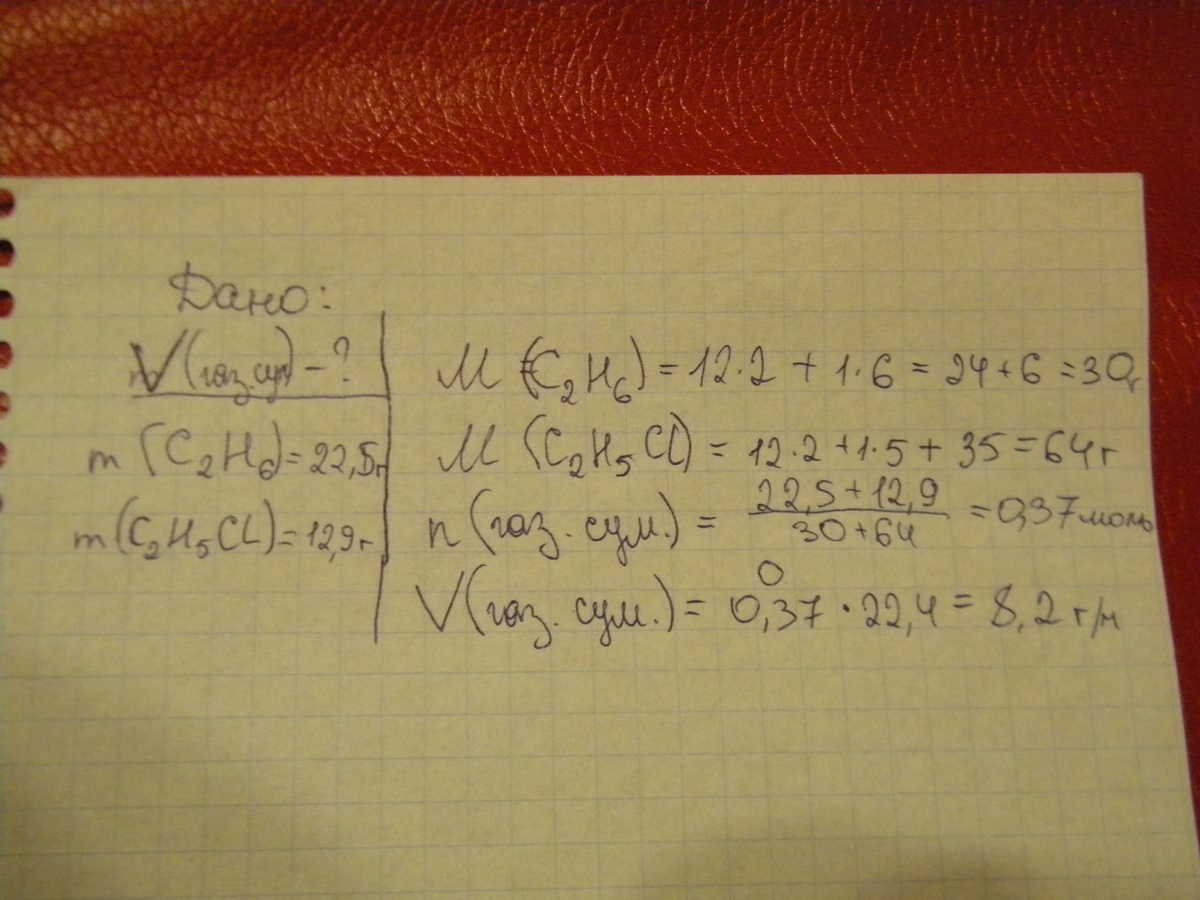 Дано:
V(газ.сум) - ?
m (C₂H₆) = 22,5г
m (C₂H₅Cl) = 12,9г
M (C₂H₆) = 12·2 + 1·6 = 24+6 = 30г
M (C₂H₅Cl) = 12·2+1·5 + 35 = 64г
n (газ. сум.) = 22,5+12,9 / 30+64 = 0,37 моль
V(газ. сум.) = 0,37 · 22,4 = 8,2 г/м